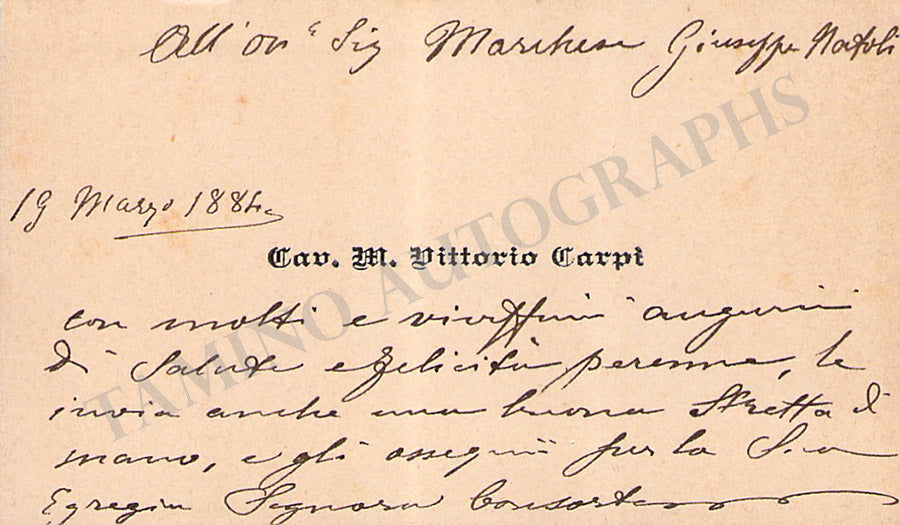 All'on.e Sig Marchese Giuseppe Natoli
19 Marzo 1884
Cav. M. Vittorio Carpi
con molti e vivissimi augurii
di salute e felicità perenne, le
invia anche una buona stretta di
mano, e gli ossequii per la Sua
Egregia Signora Consorte
TAMINO AUTOGRAPHS